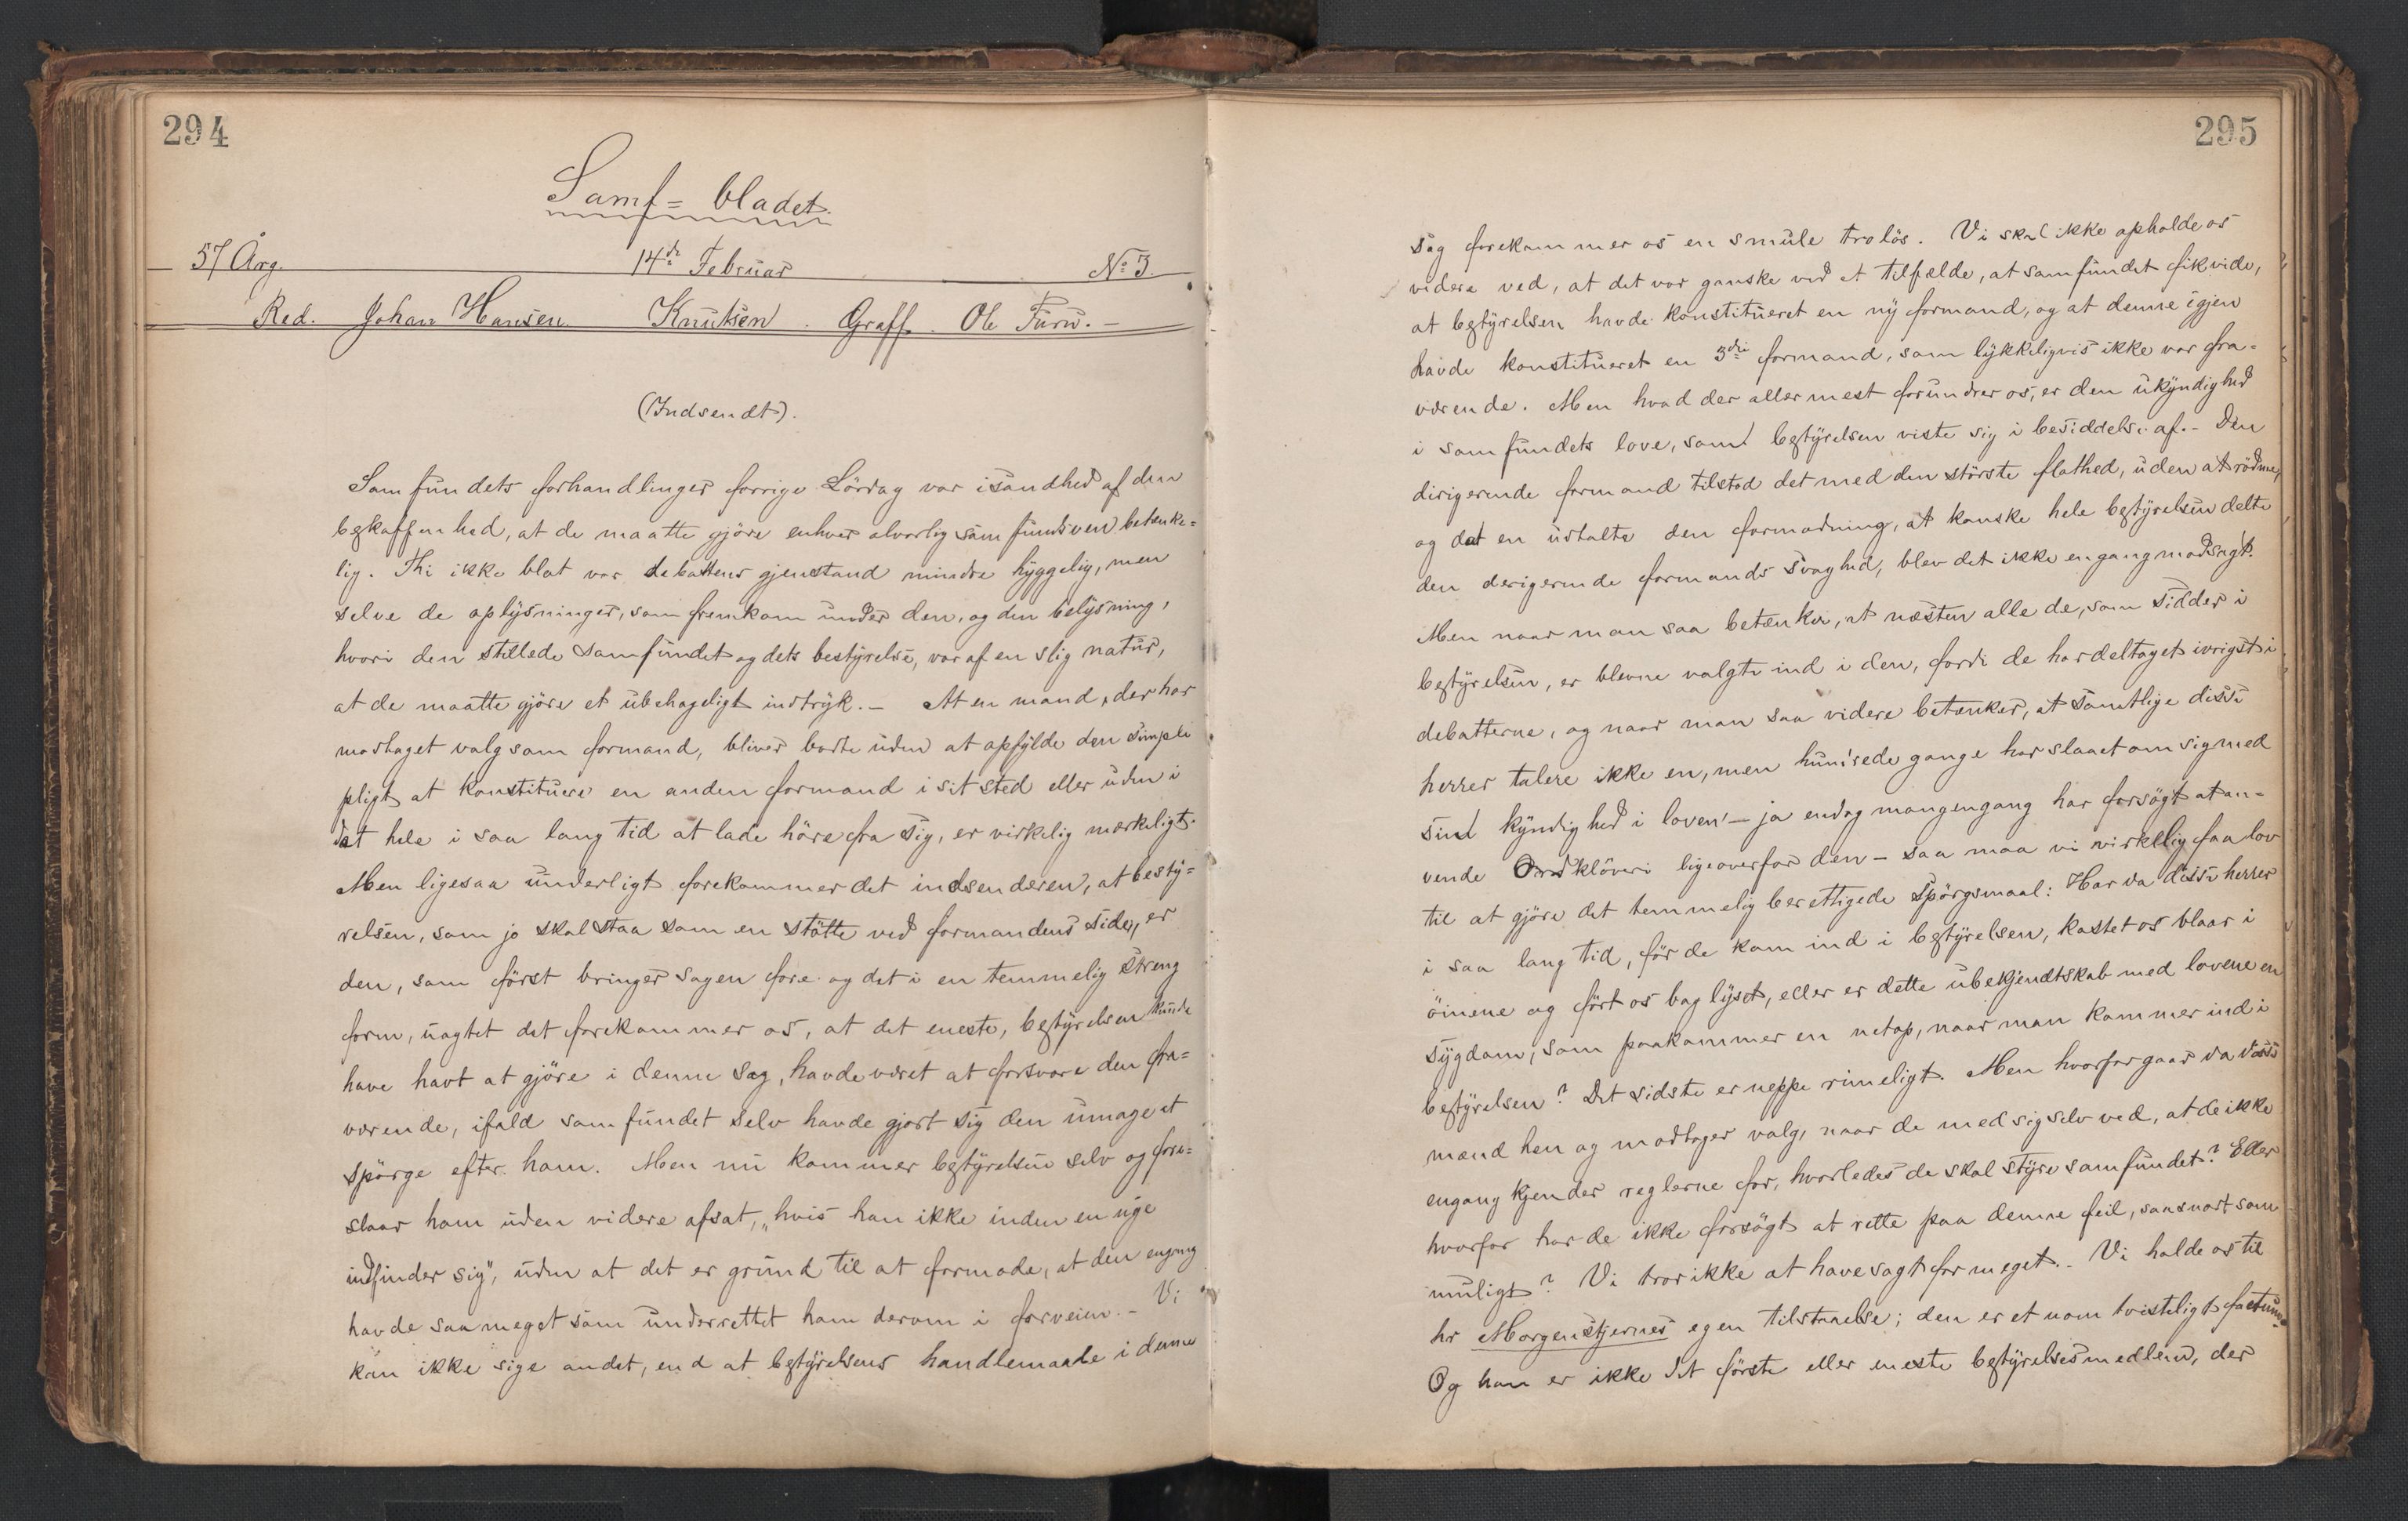 294
Samf= bladet.
57 Årg. 14de Februar No 3.
Red. Johan Hansen. Knutsen. Graff. Ole Furu. –
(Indsendt).
Samfundets forhandlinger forrige Lördag var isandhed af den
beskaffenhed, at de maatte gjöre enhver alvorlig samfundsven betænke=
lig. Thi ikke blot var debattens gjenstand mindre hyggelig, men
selve de oplysninger, som fremkom under den, og den belysning,
hvori den stillede samfundet og dets bestyrelse, var af en slig natur,
at de maatte gjöre et übehageligt indtryk. – At en mand, der har
modtaget valg som formand, bliver borte uden at opfylde den simple
pligt at konstituere en anden formand i sit sted eller uden i
det hele i saa lang tid at lade höre fra sig, er virkelig mærkeligt.
Men ligesaa underligt forekommer det indsenderen, at besty=
relsen, som jo skal staa som en stötte ved formandens side, er
den, som först bringer sagen fore og det i en temmelig streng
form, uagtet det forekommer os, at det eneste, bestyrelsen kunde
have havt at gjöre i denne sag, havde været at forsvare den fra=
værende, ifald samfundet selv havde gjort sig den umage at
spörge efter ham. Men nu kommer bestyrelsen selv og fore=
slaar ham uden videre afsat, "hvis han ikke inden en uge
indfinder sig", uden at det er grund til at formode, at den engang
havde saa meget som underrettet ham derom i forveien. – Vi
kan ikke sige andet, end at bestyrelsens handlemaade i denne
295
sag forekommer os en smule trolös. Vi skal ikke opholde os
videre ved, at det var ganske ved et tilfælde, at samfundet fik vide,
at bestyrelsen havde konstitueret en ny formand, og at denne igjen
havde konstitueret en 3die formand, som lykkeligvis ikke var fra=
værende. Men hvad der allermest forundrer os, er den ukyndighed
i samfundets love, som bestyrelsen viste sig i besiddelse af. – Den
dirigerende formand tilstod det med den störste flathed, uden at rödme,
og da en udtalte den formodning, at kanske hele bestyrelsen delte
den derigerende formands svaghed, blev det ikke engang modsagt.
Men naar man saa betænker, at næsten alle de, som sidder i
bestyrelsen, er blevne valgte ind i den, fordi de har deltaget ivrigst i
debatterne, og naar man saa videre betænker, at samtlige disse
herrer talere ikke en, men hundrede gange har slaaet om sig med
sin kyndighed i loven – ja endog mangengang har forsögt at an=
vende Ordklöveri ligeoverfor den – saa maa vi virkelig faa lov
til at gjöre det temmelig berettigede spörgsmaal: Har da disse herrer
i saa lang tid, för de kom ind i bestyrelsen, kastet os blaar i
öinene og fört os bag lyset, eller er dette ubekjendtskab med lovene en
sygdom, som paakommer en netop, naar man kommer ind i
bestyrelsen? Det sidste er neppe rimeligt. Men hvorfor gaar da disse
mænd hen og modtager valg, naar de med sig selv ved, at de ikke
engang kjender reglerne for, hvorledes de skal styre samfundet? Eller
hvorfor har de ikke forsögt at rette paa denne feil, saasnart som
muligt? Vi tror ikke at have sagt for meget. – Vi holde os til
hr Morgenstjernes egen tilstaaelse; den er et uomtvisteligt factum.
Og han er ikke det förste eller eneste bestyrelsesmedlem, der